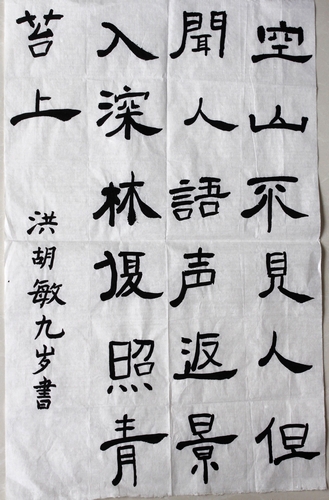 空山不見人但
聞人語声返景
入深林復照青
苔上
洪胡敏九岁書